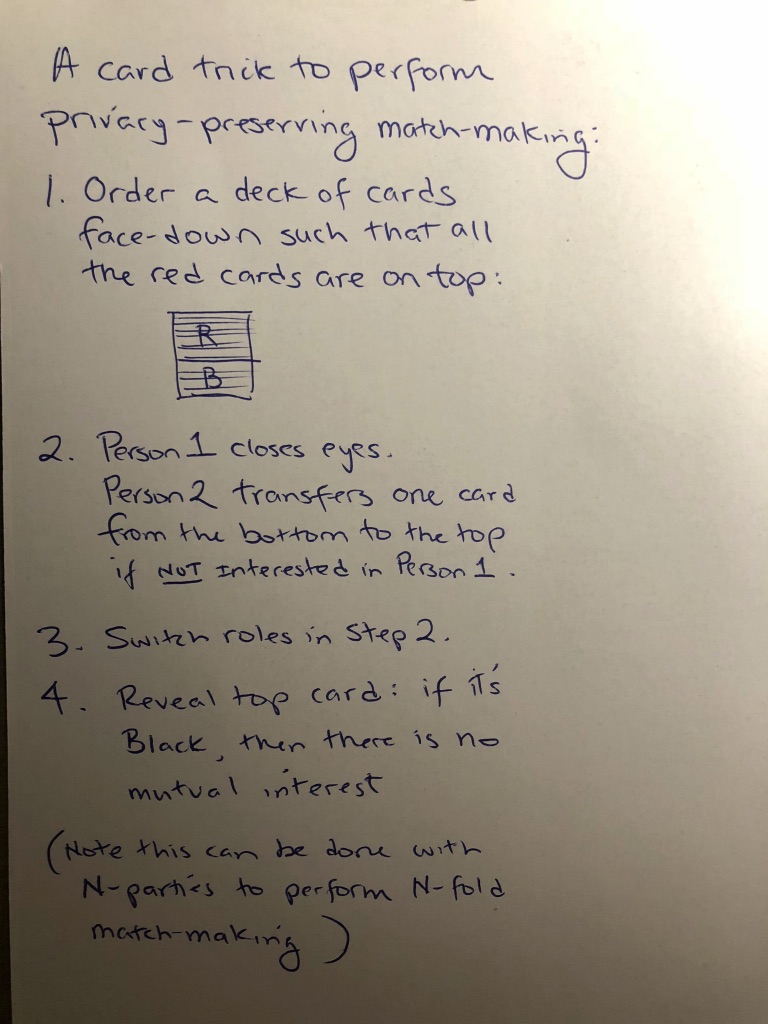 A card trick to perform
privacy-preserving match-making:
1. Order a deck of cards
face-down such that all
the red cards are on top:
R
B
2. Person 1 closes eyes.
Person 2 transfers one card
from the bottom to the top
if NOT interested in Person 1.
3. Switch roles in Step 2.
4. Reveal top card: if it's
Black, then there is no
mutual interest
(Note this can be done with
N-parties to perform N-fold
match-making)